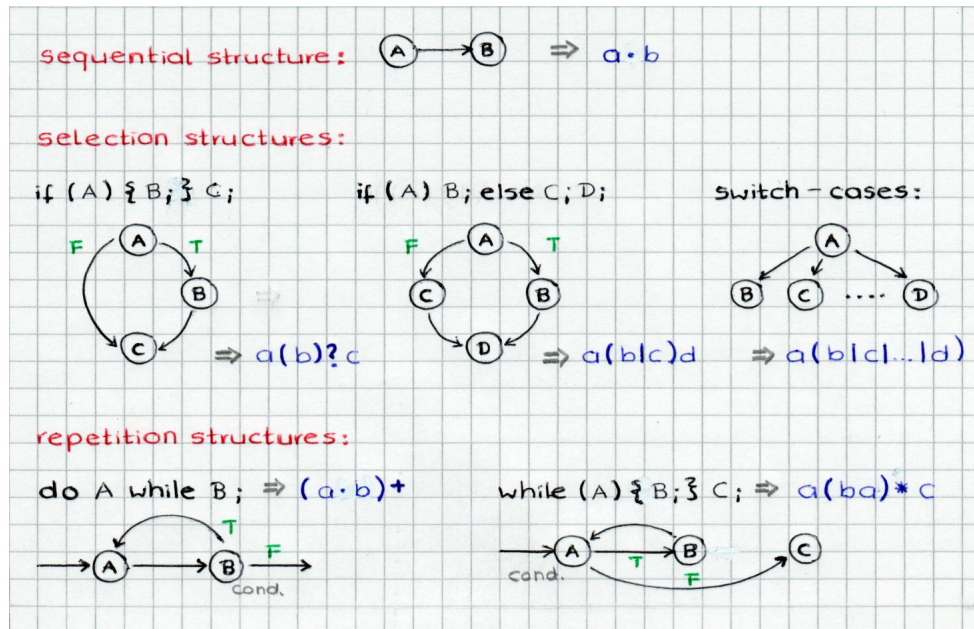 sequential structure: A B ⇒ a·b
selection structures:
if (A) { B; } C;
F A T
B
C ⇒ a(b)?c
if (A) B; else C; D;
F A T
C B
D ⇒ a(b|c)d
switch-cases:
A
B C .... D
⇒ a(b|c|...|d)
repetition structures:
do A while B; ⇒ (a·b)+
T
A B F
cond.
while (A) { B; } C; ⇒ a(ba)* c
A B C
cond. T F